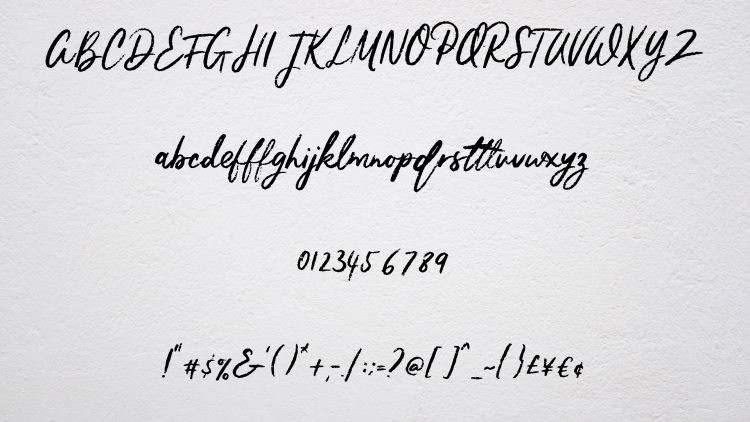 ABCDEFGHIJKLMNOPQRSTUVWXYZ
abcdefffghijklmnopqrstttuvwxyz
0123456789
!"#$%&'()*+,-./:;=?@[]^_~{}£¥€¢